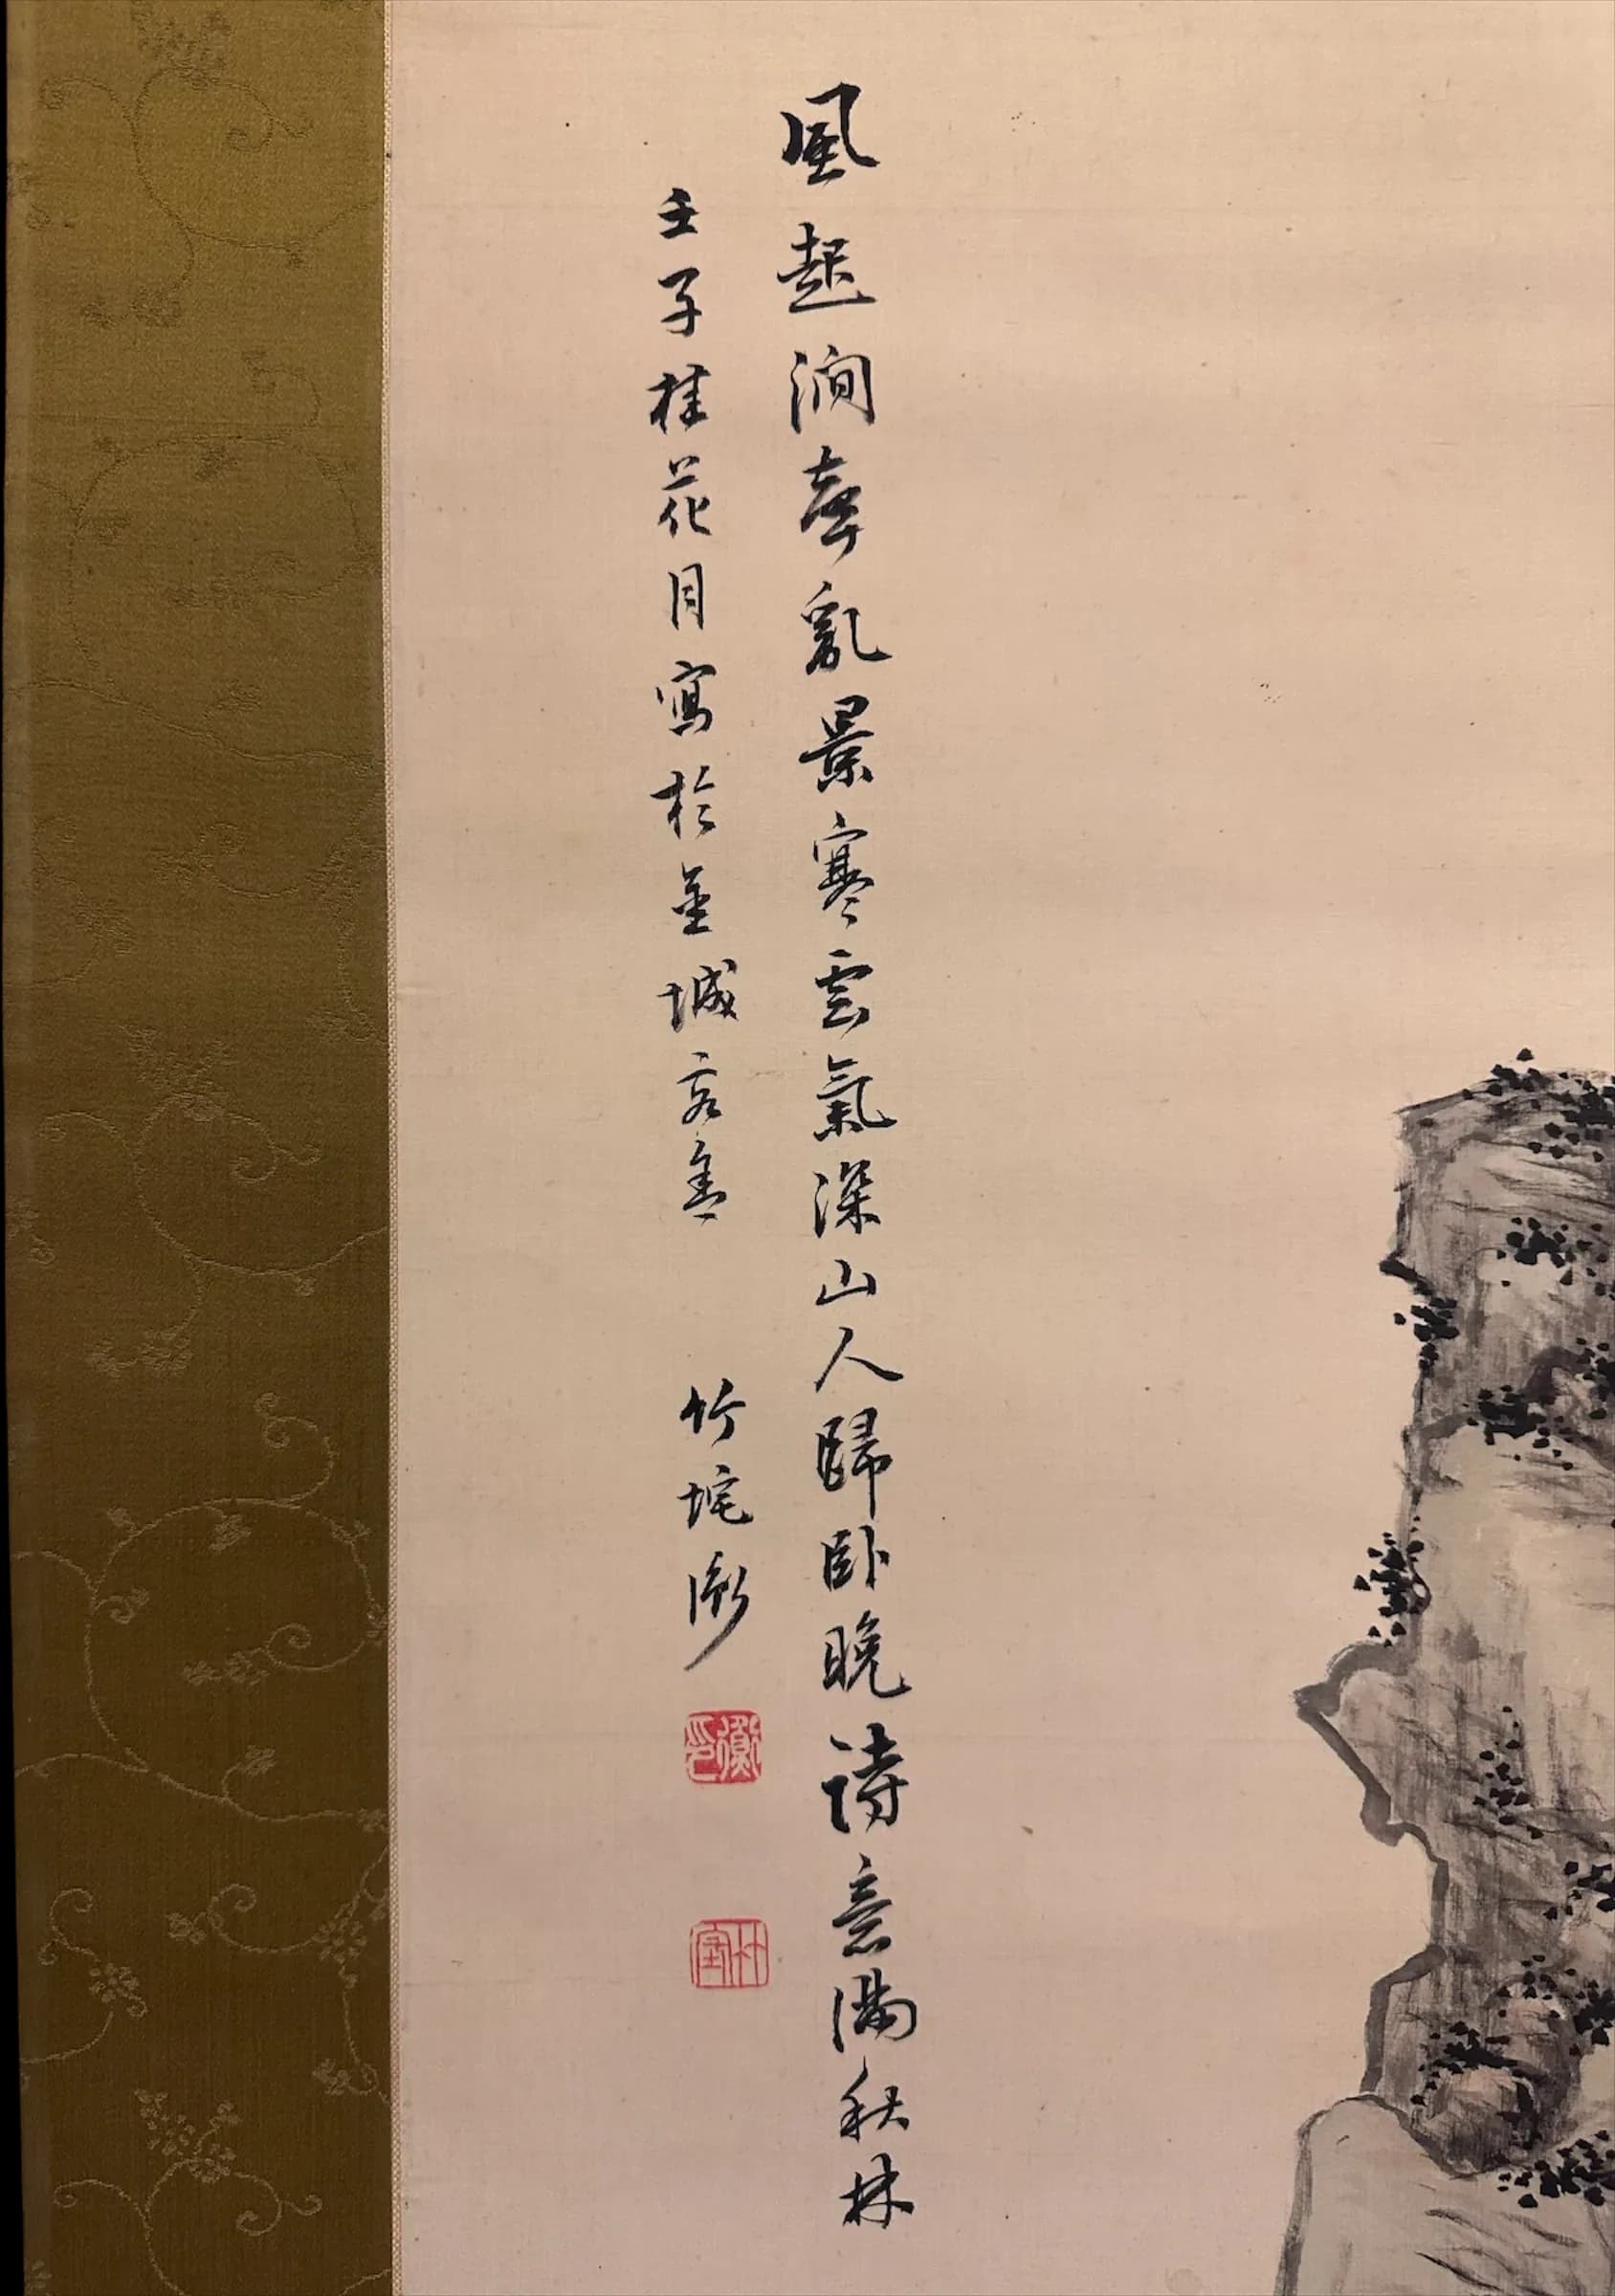 風起澗聲亂景寒雲氣深山人歸臥晚詩意滿秋林
壬子桂花月寫於金城客舍
竹坨衡
衡印
竹坨